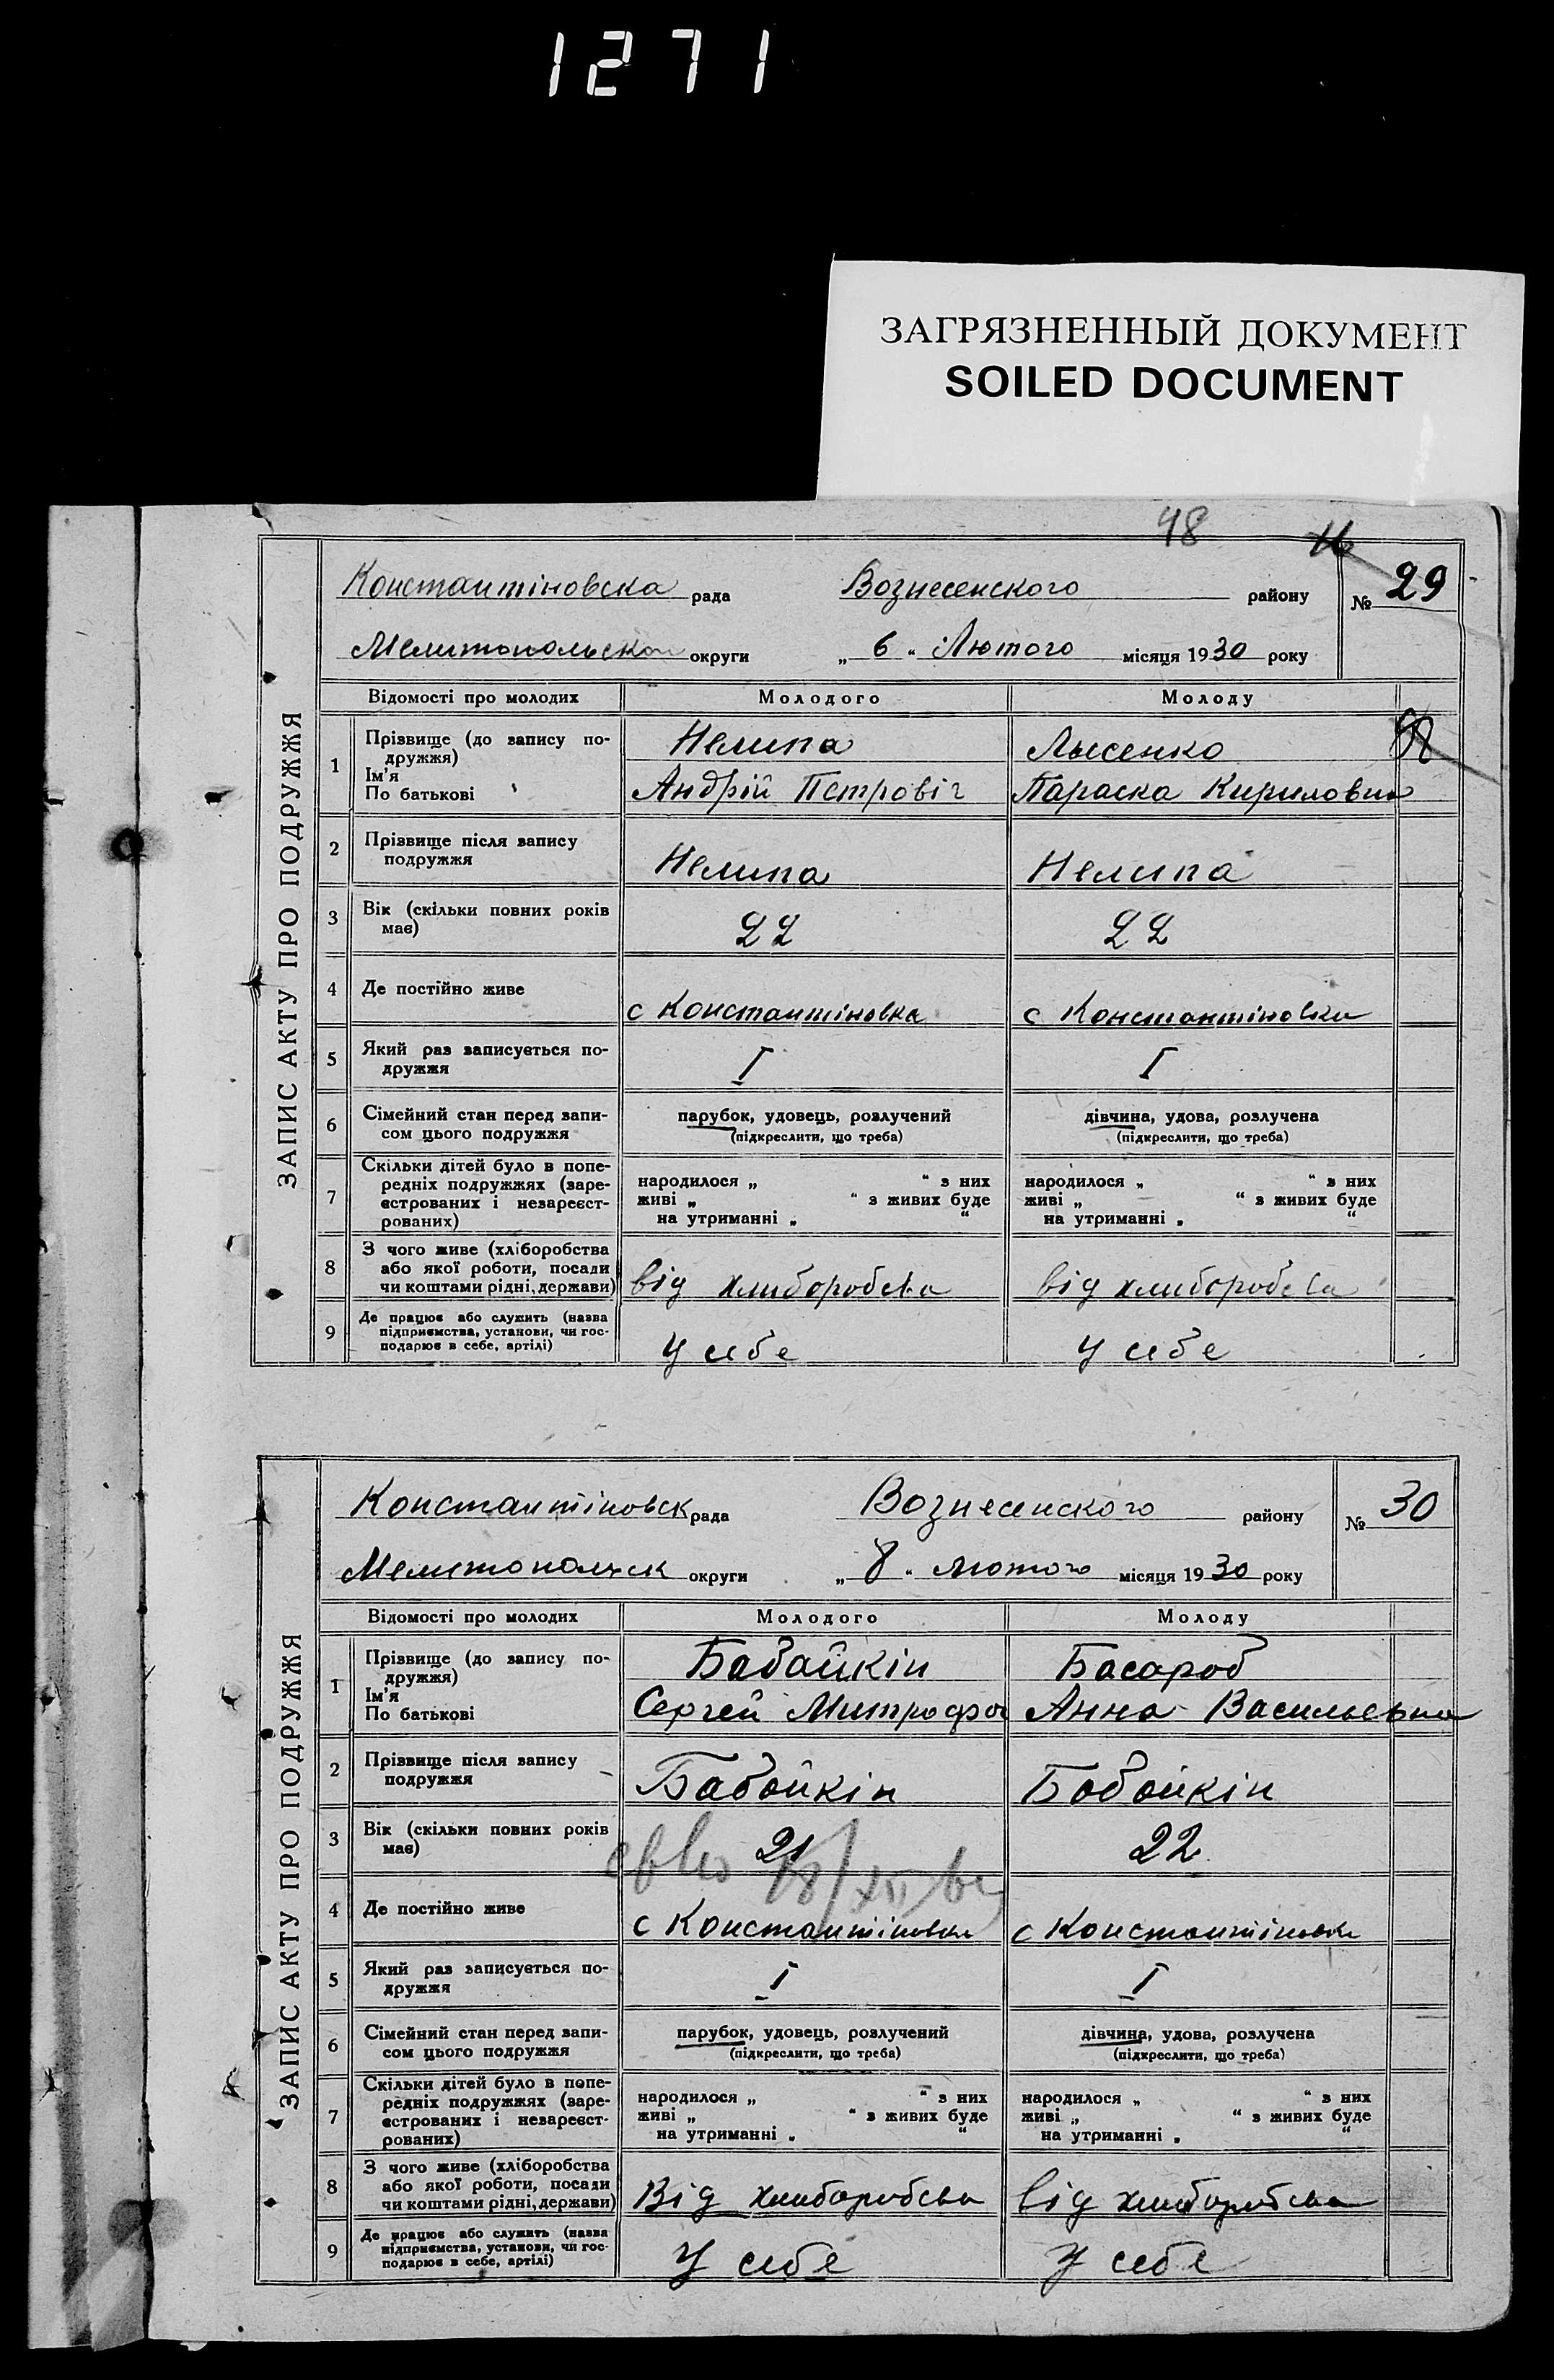 1271
ЗАГРЯЗНЕННЫЙ ДОКУМЕНТ
SOILED DOCUMENT
48
ЗАПИС АКТУ ПРО ПОДРУЖЖЯ
Константіновска рада Вознесенского району № 29
Мелитопольскои округи „ 6 “ Лютого місяця 1930 року
Відомості про молодих Молодого Молоду
1 Прізвище (до запису по-
дружжя)
Ім'я
По батькові
Нелипа Лысенко
Андрій Петровіч Параска Кириловна
2 Прізвище після запису
подружжя
Нелипа Нелипа
3 Вік (скільки повних років
має)
22 22
4 Де постійно живе
с Константіновка с Константіновки
5 Який раз записується по-
дружжя
I I
6 Сімейний стан перед запи-
сом цього подружжя
парубок, удовець, розлучений дівчина, удова, розлучена
(підкреслити, що треба) (підкреслити, що треба)
7 Скільки дітей було в попе-
редніх подружжях (заре-
єстрованих і незареєст-
рованих)
народилося „ “ з них народилося „ “ з них
живі „ “ з живих буде живі „ “ з живих буде
на утриманні „ “ на утриманні „ “
8 З чого живе (хліборобства
або якої роботи, посади
чи коштами рідні, держави)
від хлиборобства від хлиборобства
9 Де працює або служить (назва
підприємства, установи, чи гос-
подарює в себе, артілі)
У себе У себе
ЗАПИС АКТУ ПРО ПОДРУЖЖЯ
Константіновск рада Вознесенского району № 30
Мелитопольск округи „ 8 “ лютого місяця 1930 року
Відомості про молодих Молодого Молоду
1 Прізвище (до запису по-
дружжя)
Ім'я
По батькові
Бабайкін Басароб
Сергей Митрофа Анна Васильевна
2 Прізвище після запису
подружжя
Бабайкін Бобойкін
3 Вік (скільки повних років
має)
21 22
4 Де постійно живе
с Константіновка с Константіновка
5 Який раз записується по-
дружжя
I I
6 Сімейний стан перед запи-
сом цього подружжя
парубок, удовець, розлучений дівчина, удова, розлучена
(підкреслити, що треба) (підкреслити, що треба)
7 Скільки дітей було в попе-
редніх подружжях (заре-
єстрованих і незареєст-
рованих)
народилося „ “ з них народилося „ “ з них
живі „ “ з живих буде живі „ “ з живих буде
на утриманні „ “ на утриманні „ “
8 З чого живе (хліборобства
або якої роботи, посади
чи коштами рідні, держави)
Від хлиборобсва від хлиборобсва
9 Де працює або служить (назва
підприємства, установи, чи гос-
подарює в себе, артілі)
У себе У себе